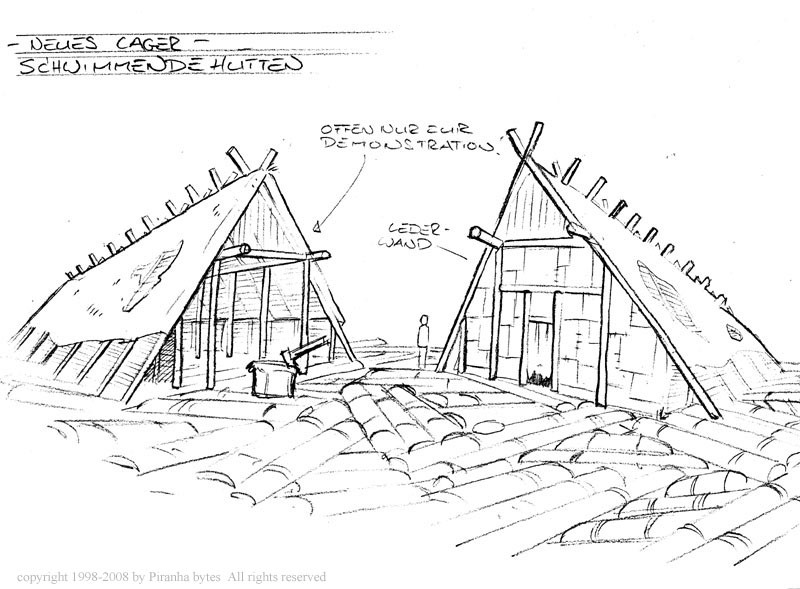 - NEUES LAGER -
SCHWIMMENDE HÜTTEN
OFFEN NUR ZUR
DEMONSTRATION!
LEDER-
WAND
copyright 1998-2008 by Piranha bytes All rights reserved